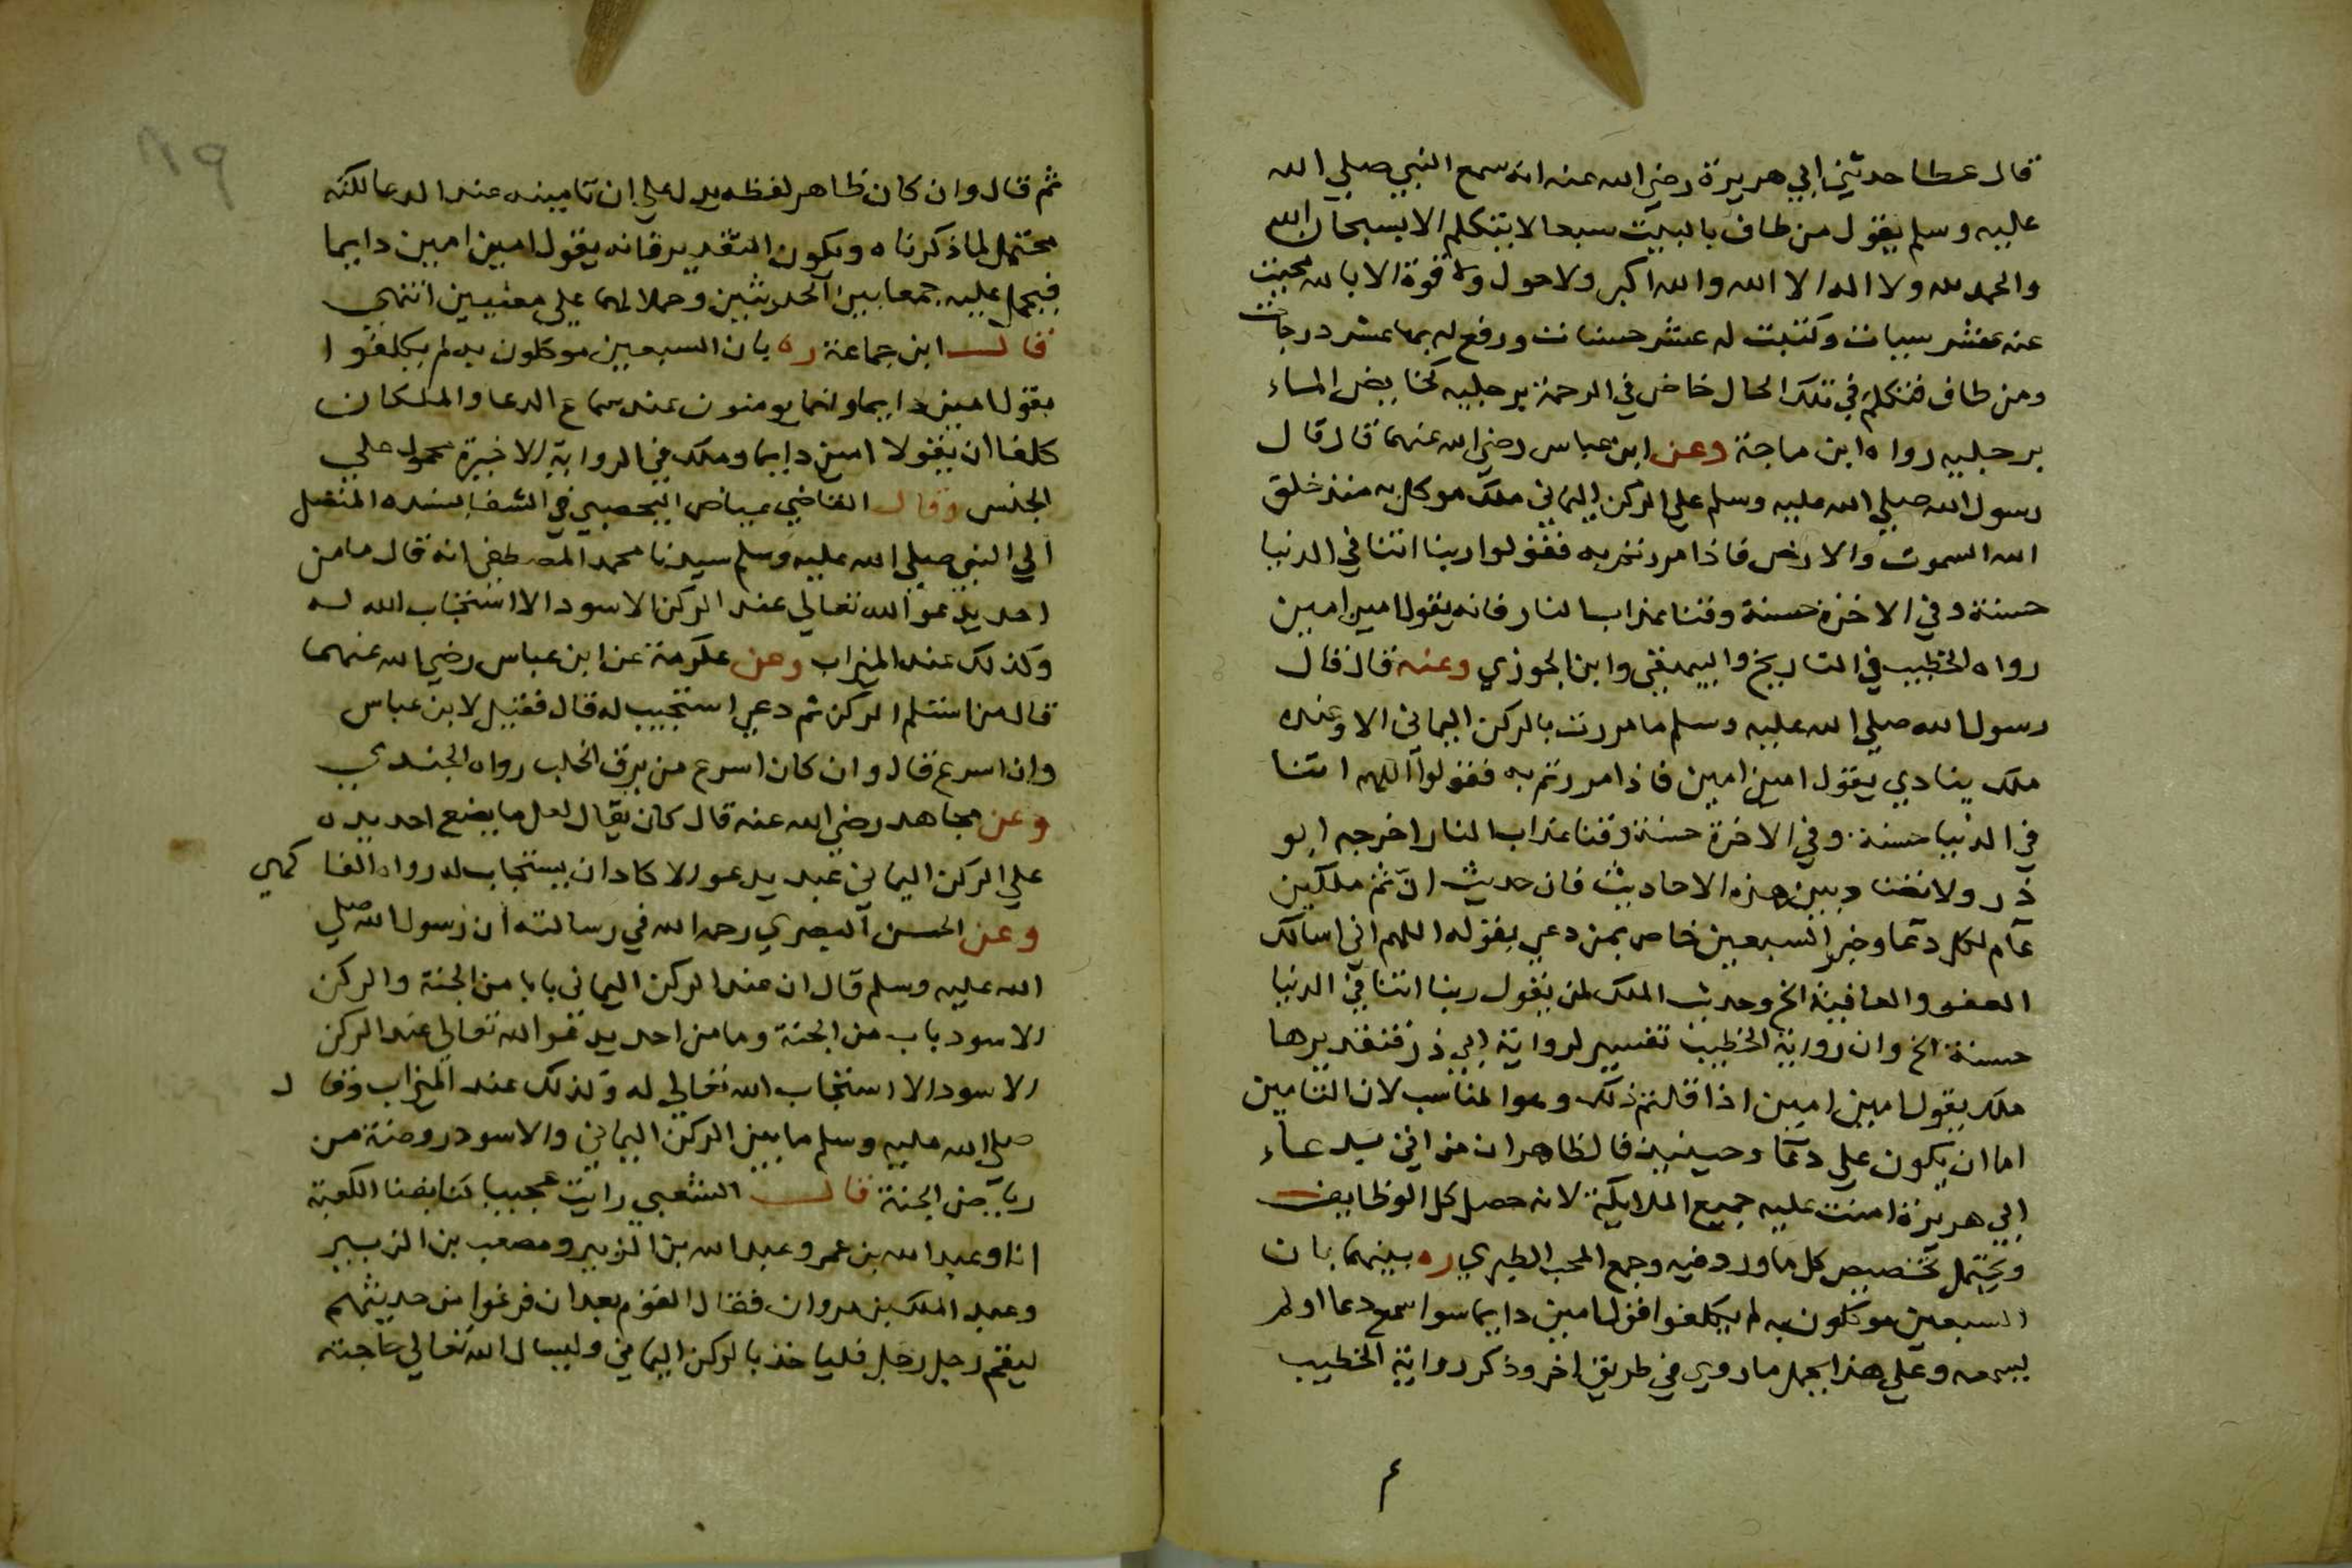 قال عطا حدثني ابي هريرة رضي الله عنه انه سمع النبي صلي الله
عليه وسلم يقول من طاف بالبيت سبعا لا يتكلم الا بسبحان الله
والحمد لله ولا اله الا الله والله اكبر ولا حول ولا قوة الا بالله محيت
عنه عشر سيات وكتبت له عشر حسنات ورفع له بها عشر درجات
ومن طاف فتكلم في تلك الحال خاض في الرحمة برجليه كخايض الماء
برجليه رواه ابن ماجة وعن ابن عباس رضي الله عنهما قال قال
رسول الله صلي الله عليه وسلم علي الركن اليماني ملك موكل به منذ خلق
الله السموت والارض فاذا مررتم به فقولوا ربنا اتنا في الدنيا
حسنة وفي الاخرة حسنة وقنا عذاب النار فانه يقول امين امين
رواه الخطيب في التاريخ والبيهقي وابن الجوزي وعنه قال قال
رسول الله صلي الله عليه وسلم ما مررت بالركن اليماني الا وعنده
ملك ينادي يقول امين امين فاذا مررتم به فقولوا اللهم اتنا
في الدنيا حسنة وفي الاخرة حسنة وقنا عذاب النار اخرجه ابو
ذر ولا تضاد بين هذه الاحاديث فان حديث ان ثم ملكين
عام لكل دعا وخبر السبعين خاص بمن دعي بقوله اللهم اني اسالك
العفو والعافية الخ وحديث الملك لمن يقول ربنا اتنا في الدنيا
حسنة الخ وان رواية الخطيب تفسير لرواية ابي ذر فتقديرها
ملك يقول امين امين اذا قلتم ذلك وهو المناسب لان التامين
اما ان يكون علي دعاء وحينيذ فالظاهر ان من اتي بدعاء
ابي هريرة امنت عليه جميع الملايكة لانه حصل كل الوظايف
ويحتمل تخصيص كل ما ورد فيه وجمع المحب الطبري ره بينهما بان
السبعين موكلون به لم يكلفوا قول امين دايما سوا سمع دعا اولم
يسمعه وعلي هذا يحمل ما روي في طريق اخر وذكر رواية الخطيب
م
٨٩
ثم قال وان كان ظاهر لفظه يدل علي ان تامينه عند الدعا لكنه
محتمل لما ذكرناه ويكون التقدير فانه يقول امين امين دايما
فيحمل عليه جمعا بين الحديثين وحملا لهما علي معنيين انتهي
قال ابن جماعة ره بان السبعين موكلون به لم يكلفوا
بقول امين دايما وانما يومنون عند سماع الدعا والملكان
كلفا ان يقولا امين دايما وملك في الرواية الاخيرة محمول علي
الجنس وقال القاضي عياض اليحصبي في الشفا بسنده المتصل
الي النبي صلي الله عليه وسلم سيدنا محمد المصطفي انه قال ما من
احد يدعو الله تعالي عند الركن الاسود الا استجاب الله له
وكذلك عند الميزاب وعن عكرمة عن ابن عباس رضي الله عنهما
قال من استلم الركن ثم دعي استجيب له قال فقيل لابن عباس
وان اسرع قال وان كان اسرع من برق الخلب رواه الجندي
وعن مجاهد رضي الله عنه قال كان يقال لعل ما يضع احد يده
علي الركن اليماني عبد يدعو الا كاد ان يستجاب له رواه الفاكهي
وعن الحسن البصري رحمه الله في رسالته ان رسول الله صلي
الله عليه وسلم قال ان عند الركن اليماني بابا من الجنة والركن
الاسود باب من الجنة وما من احد يدعو الله تعالي عند الركن
الاسود الا استجاب الله تعالي له وكذلك عند الميزاب وقال
صلي الله عليه وسلم ما بين الركن اليماني والاسود روضة من
رياض الجنة قال الشعبي رايت عجيبا كنا بفنا الكعبة
انا وعبد الله بن عمر وعبد الله بن الزبير ومصعب بن الزبير
وعبد الملك بن مروان فقال القوم بعد ان فرغوا من حديثهم
ليقم رجل رجل فلياخذ بالركن اليماني وليسال الله تعالي حاجته